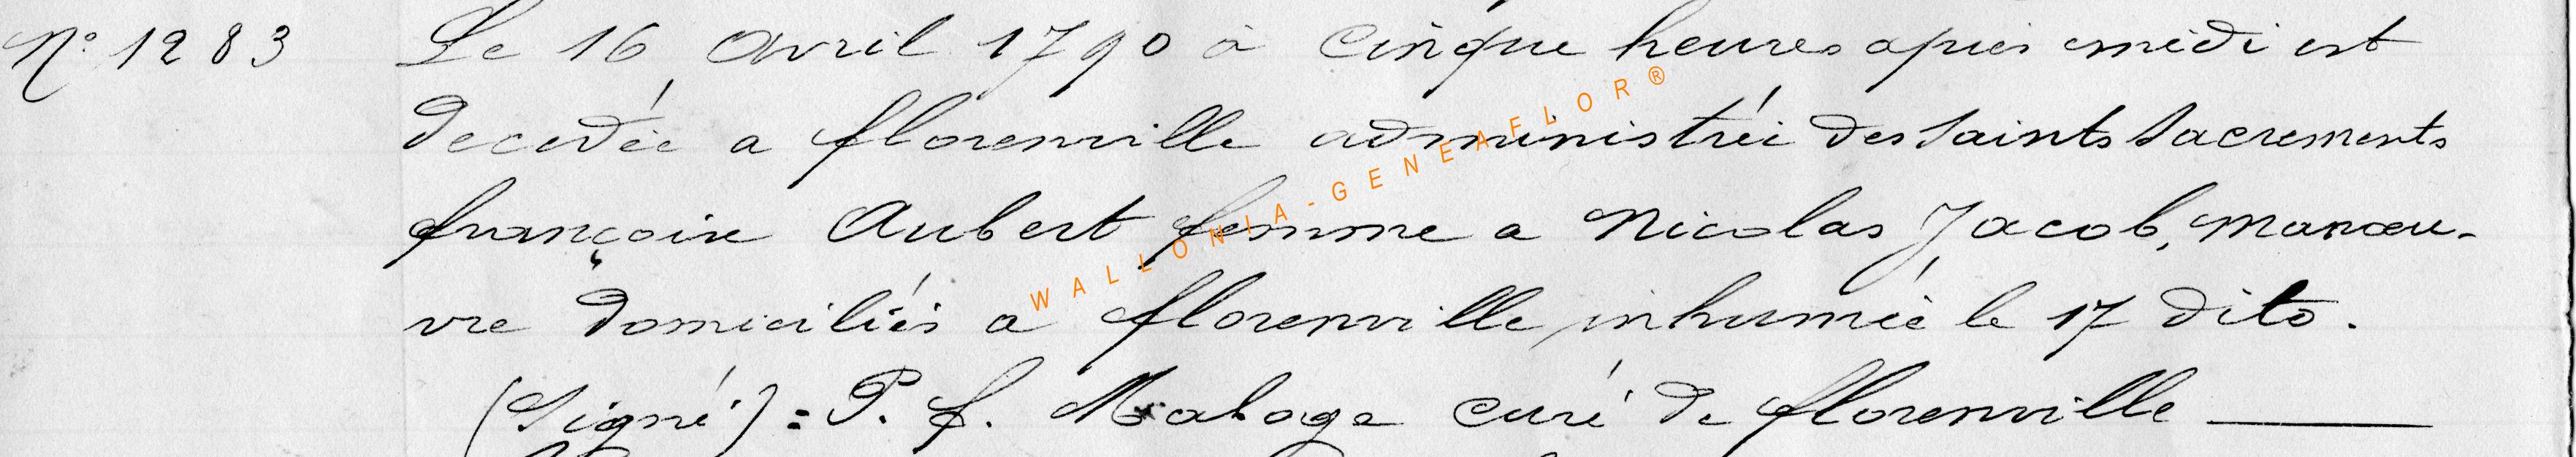 N° 1283 Le 16 Avril 1790 à cinque heures apres midi est
decedée a florenville administrée des saints sacrements
françoise Aubert femme a Nicolas Jacob, Manœu-
vre domiciliés a florenville inhumée le 17 dito.
(Signé) = P. f. Mahoge curé de florenville
WALLONIA-GENEAFLOR®